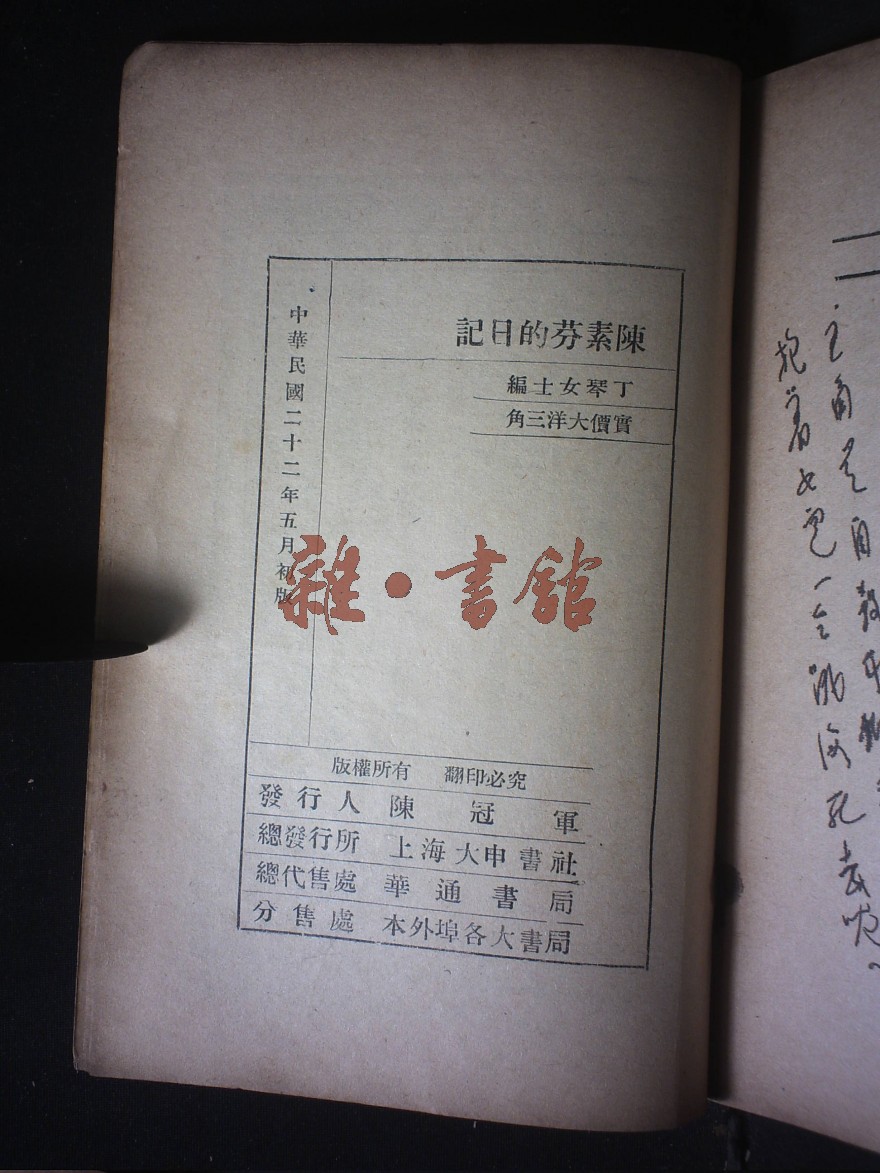 陳素芬的日記
丁琴女士編
實價大洋三角
中華民國二十二年五月初版
雜·書館
版權所有 翻印必究
發行人 陳冠軍
總發行所 上海大申書社
總代售處 華通書局
分售處 本外埠各大書局